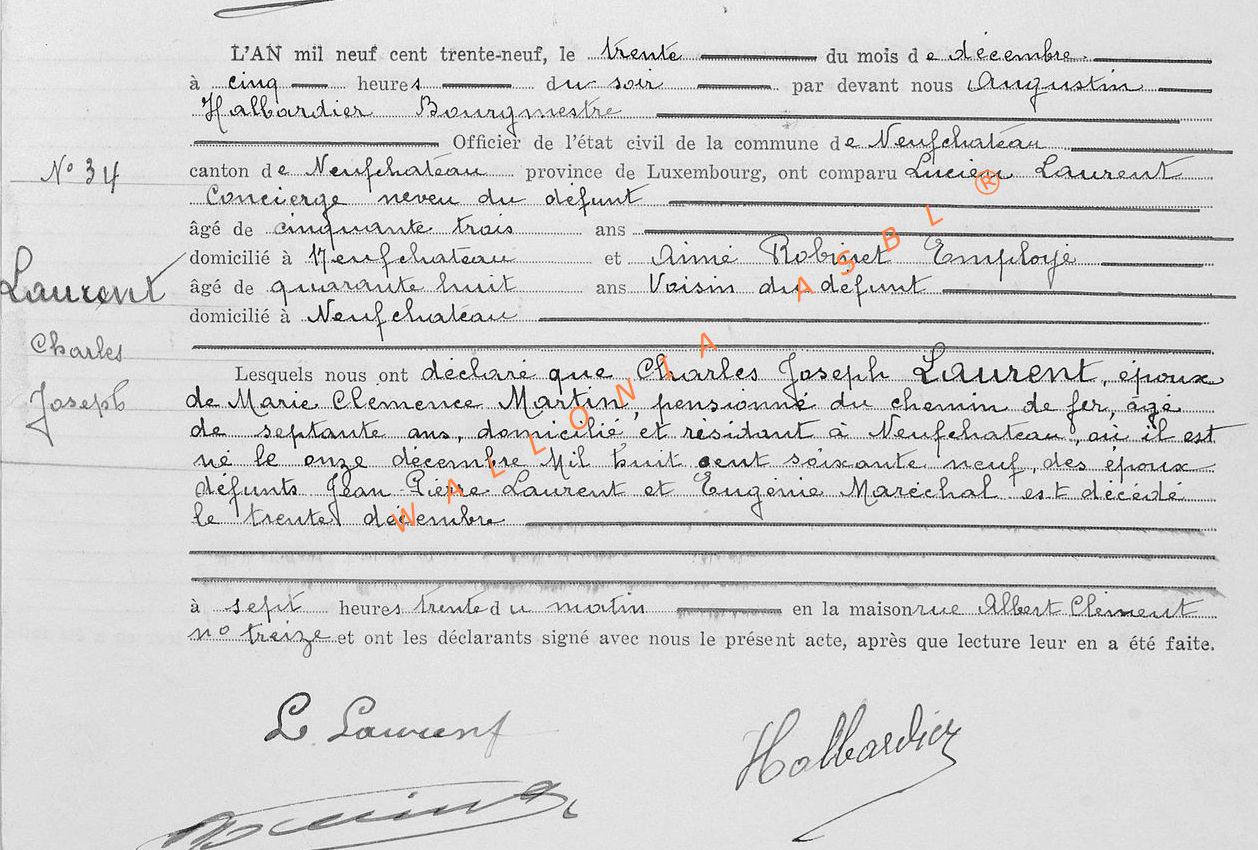 L'AN mil neuf cent trente-neuf, le trente du mois de décembre
à cinq heures du soir par devant nous Augustin
Halbardier Bourgmestre
Officier de l'état civil de la commune de Neufchateau
N° 34
canton de Neufchateau province de Luxembourg, ont comparu Lucien Laurent
Concierge neveu du défunt
âgé de cinquante trois ans
domicilié à Neufchateau et Aimé Robinet Employé
Laurent
âgé de quarante huit ans Voisin du défunt
domicilié à Neufchateau
Charles
Joseph
Lesquels nous ont déclaré que Charles Joseph Laurent, époux
de Marie Clémence Martin, pensionné du chemin de fer, âgé
de septante ans, domicilié et résidant à Neufchateau, où il est
né le onze décembre Mil huit cent soixante neuf, des époux
défunts Jean-Pierre Laurent et Eugénie Maréchal est décédé
le trente décembre
à sept heures trente du matin en la maison rue Albert Clément
n° treize et ont les déclarants signé avec nous le présent acte, après que lecture leur en a été faite.
L. Laurent
Halbardier
WALLONIA ASBL ®